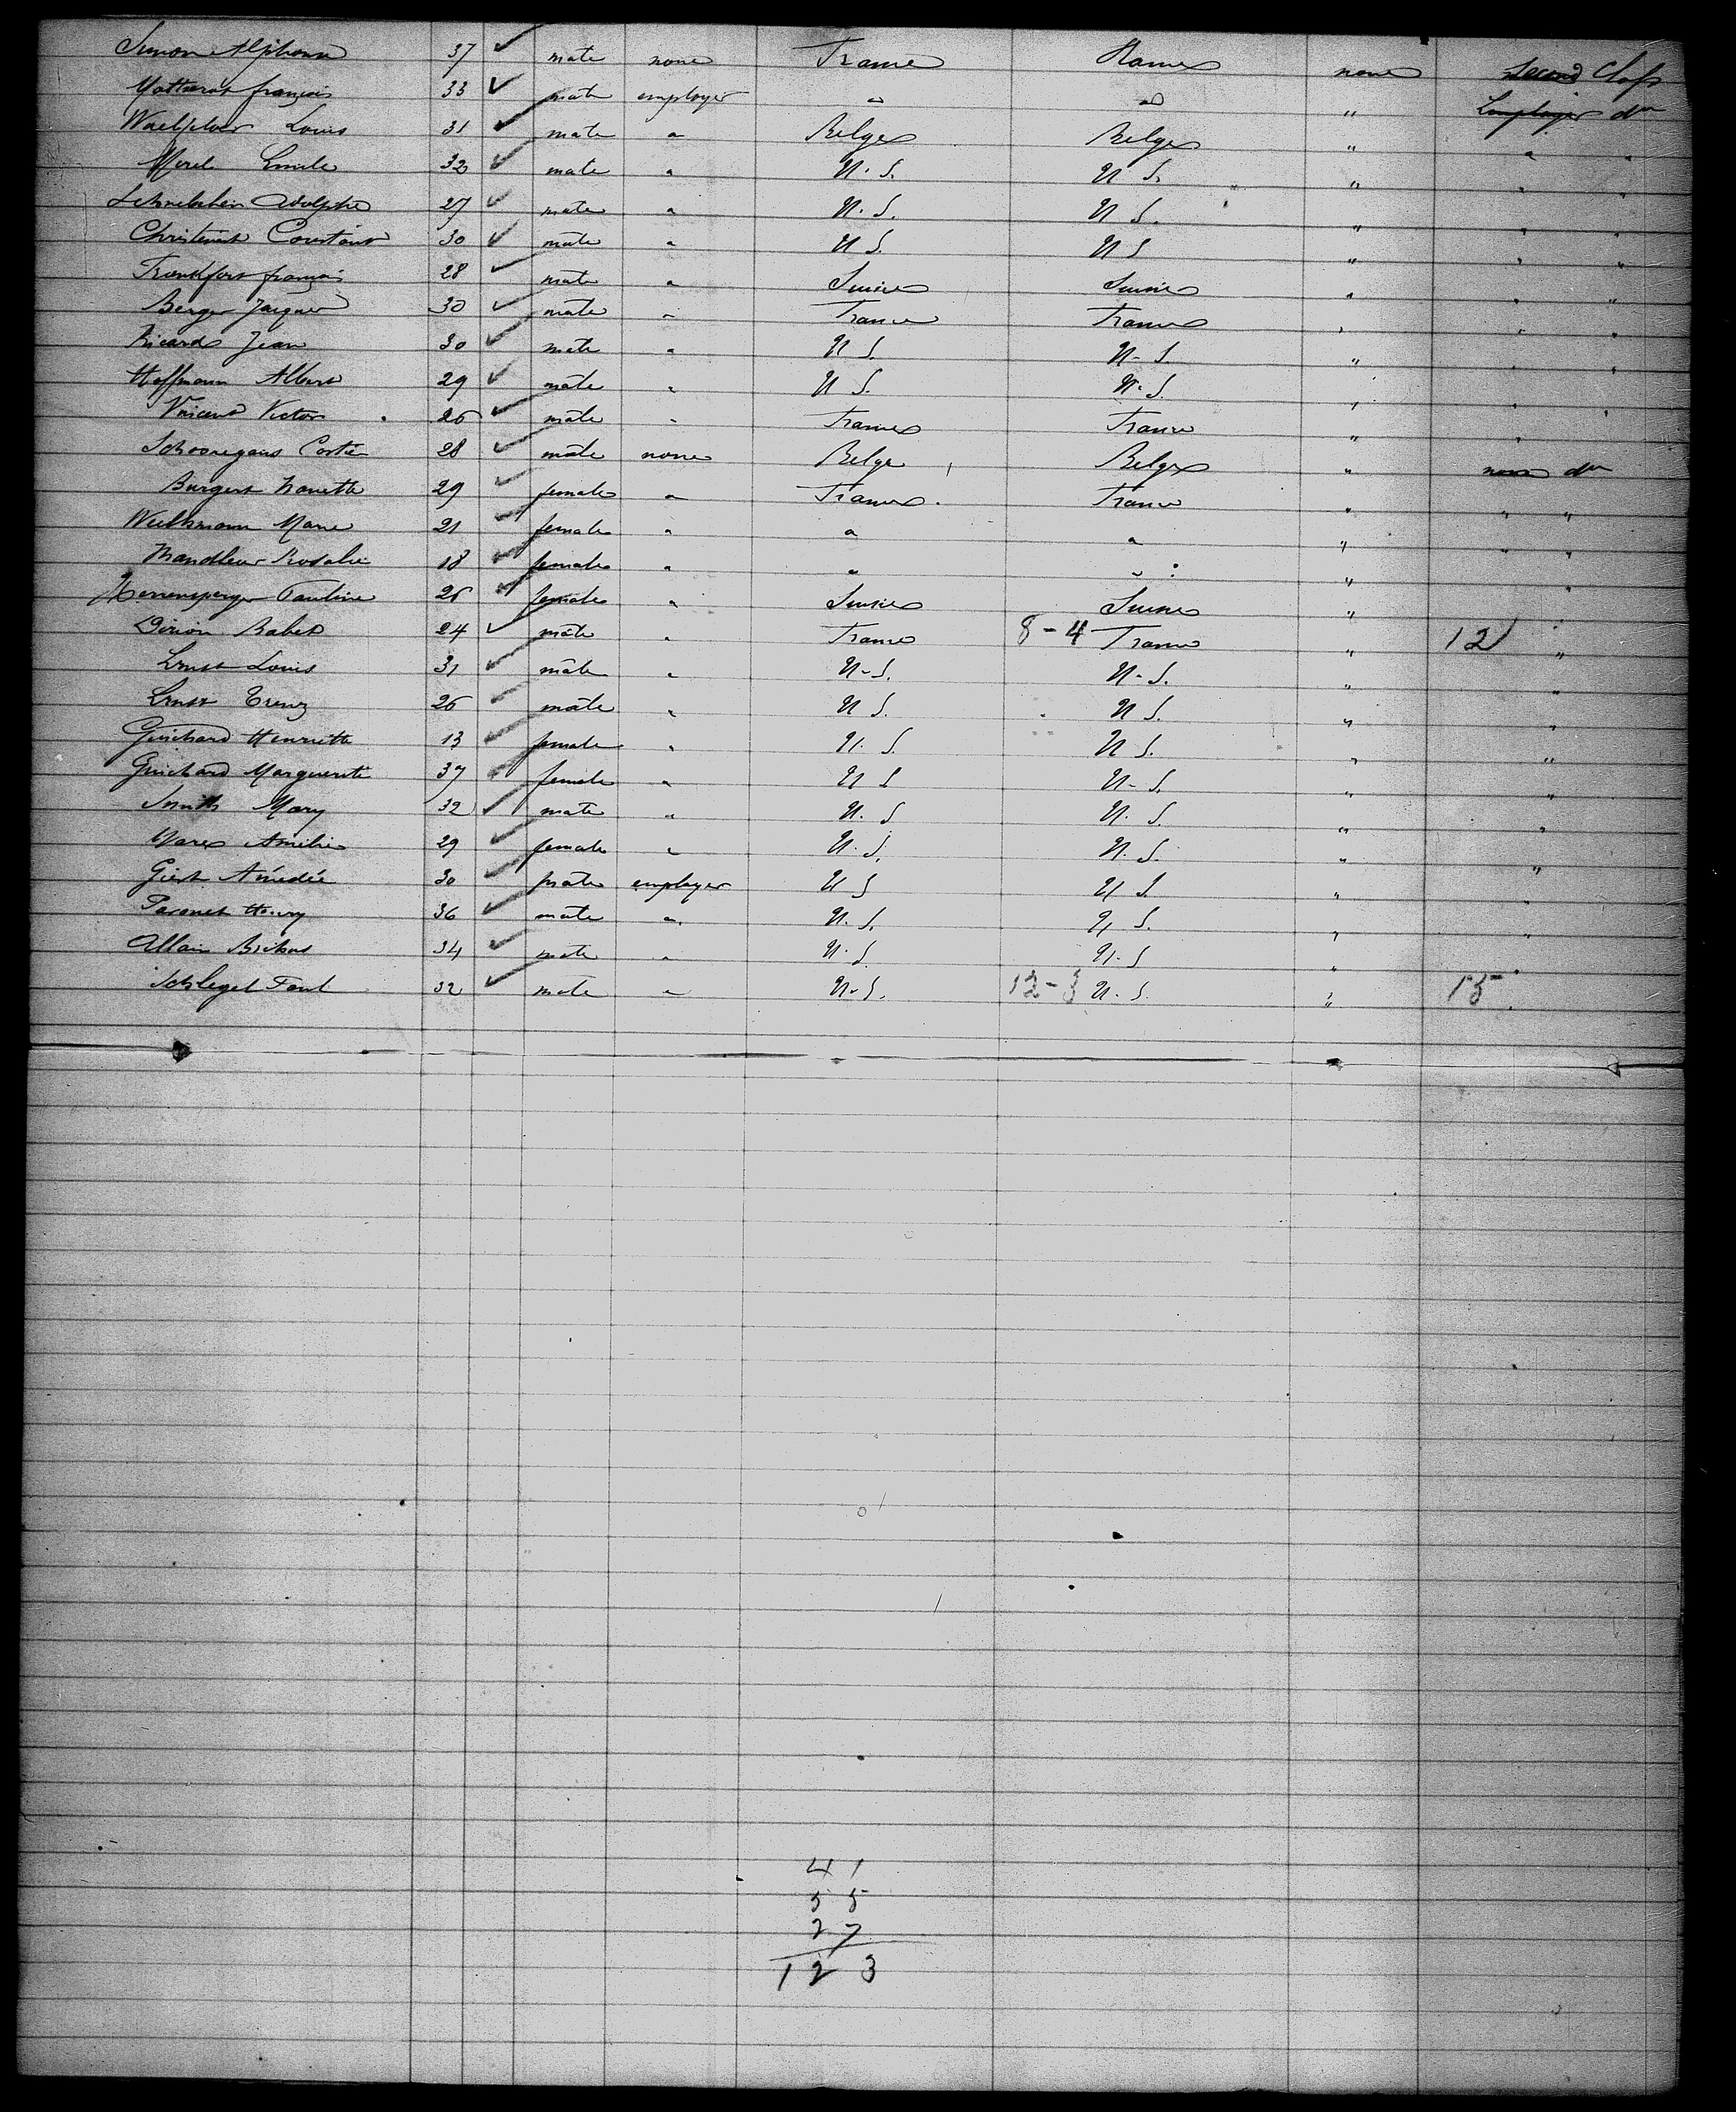 Simon Alphonse 37 ✓ male none France Havre none second Class
Motturot françois 33 ✓ male employer " " " Employer do
Louis 31 ✓ male " Belge Belge " " "
Morel Emile 32 ✓ male " U. S. U S. " " "
Adolphe 27 ✓ male " U. S. U S. " " "
Constant 30 ✓ male " U S. U S " " "
Frankfort françois 28 ✓ male " Suisse Suisse " " "
Berger Jacques 30 ✓ male " France France " " "
Ricard Jean 30 ✓ male " U S. U. S. " " "
Hoffmann Albert 29 ✓ male " U S. U. S. " " "
Vincent Victor 26 ✓ male " France France " " "
28 ✓ male none Belge Belge " none do
Burgert Nanette 29 ✓ female " France France " " "
Marie 21 ✓ female " " " " " "
Rosalie 18 ✓ female " " " " "
Pauline 26 ✓ female " Suisse Suisse " "
Babet 24 ✓ male " France 8-4 France " 12 "
Ernst Louis 31 ✓ male " U. S. U. S. " "
Ernst 26 ✓ male " U S. U S. " "
Guichard Henriette 13 ✓ female " U. S U S. " "
Guichard Marguerite 37 ✓ female " U S U. S. " "
Smith Mary 32 ✓ male " U. S U. S. " "
Marx Amélie 29 ✓ female " U. S. U. S. " "
Amédée 30 male employer U S U S. " "
Henry 36 ✓ male " U. S. U S. " "
Allain 34 ✓ male " U. S U. S " "
Schlegel Paul 32 ✓ male " U. S. 12-3 U. S. " 15 "
41
55
27
123